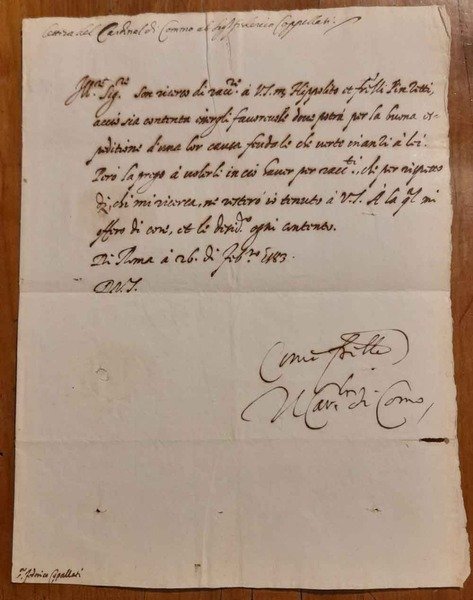 lettera del Cardinal di Commo al Sig.r Federico Cappellati.
Ill.re Sig.re Son ricerco di racc.re à V.S. m. Hippolito et f.lli
acciò sia contenta essergli favorevole dove potrà per la buona es-
peditione d'una lor causa feudale che verte inanzi à lei.
Però la prego à volerli in ciò haver per racc.ti, che per rispetto
di chi mi ricerca, ne resterò io tenuto à V.S. À la q.l mi
offero di core, et le desid.o ogni contento.
Di Roma à 26. di Feb.ro 1583.
D.V.S.
Come f.rllo
Il Car.l di Como,
Federico Cappellati